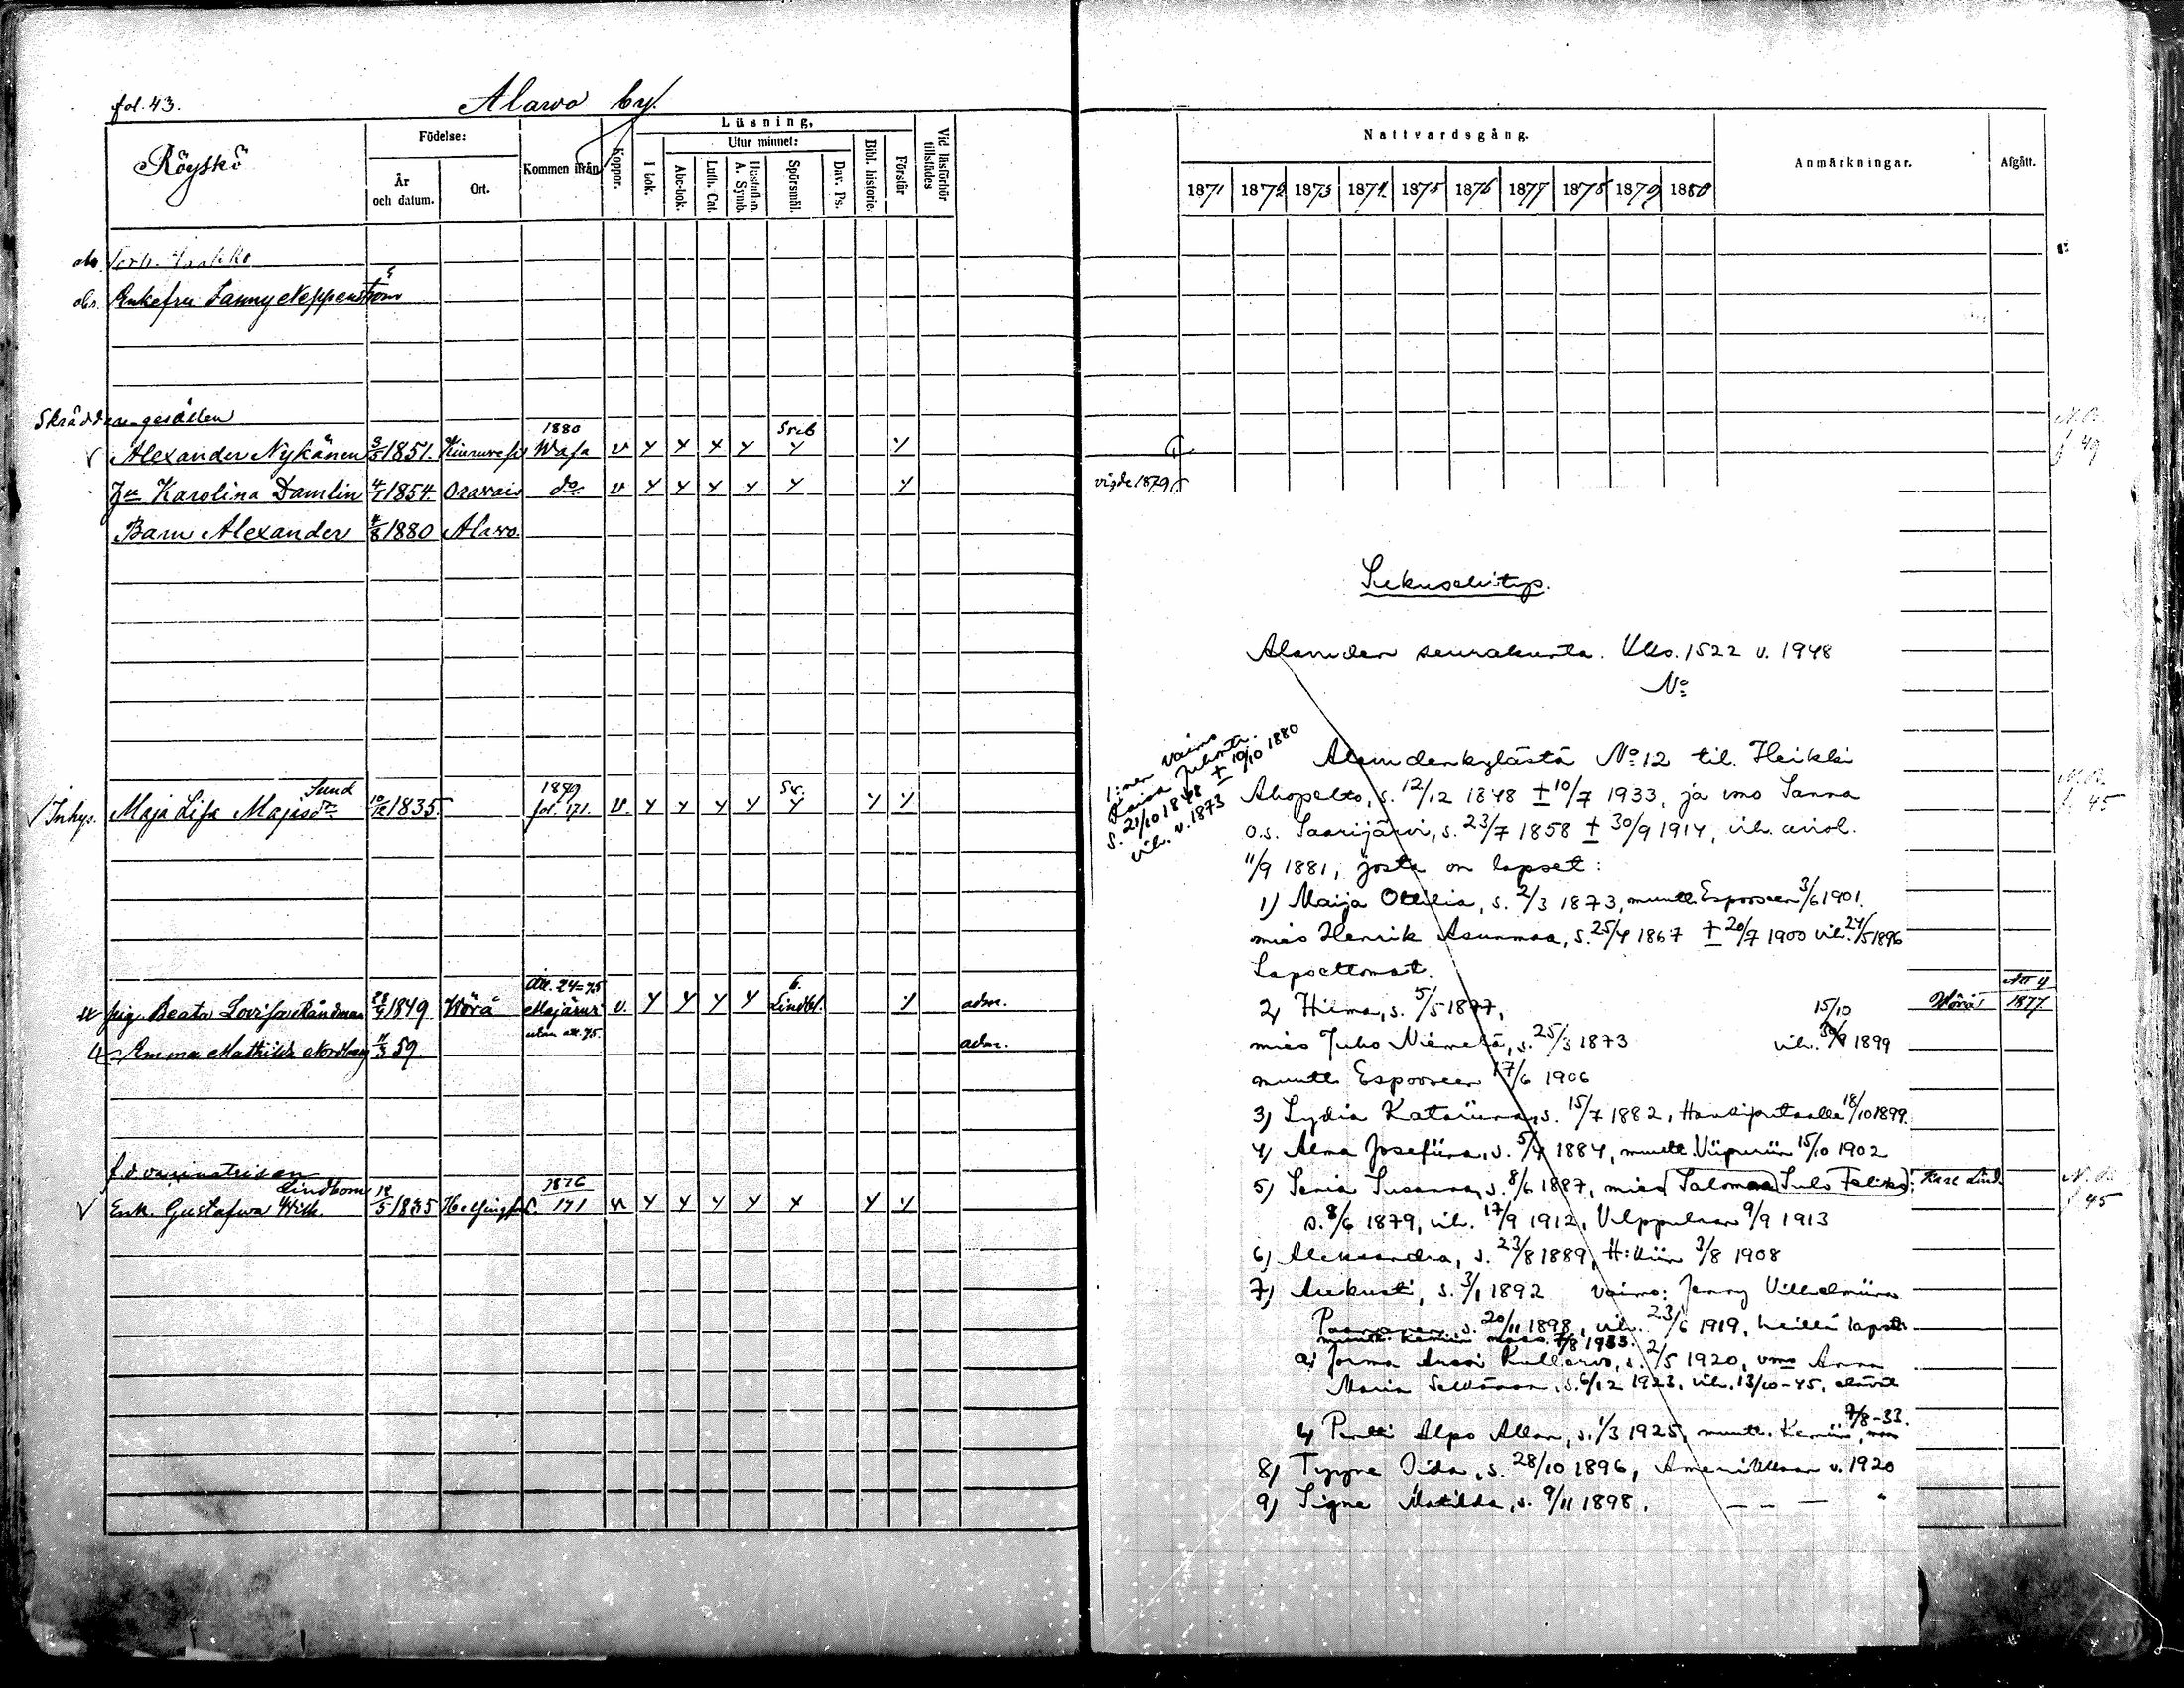 fol. 43.
Alawo by.
Röyskö
Födelse:
År och datum.
Ort.
Kommen ifrån
Koppor.
Läsning,
I bok.
Utur minnet:
Abc-bok.
Luth. Cat.
Hustaflan. A. Symb.
Spörsmål.
Dav. Ps.
Bibl. historie.
Förstår
Vid läsförhör tillstädes
Nattvardsgång.
1871 1872 1873 1874 1875 1876 1877 1878 1879 1880
Anmärkningar.
Afgått.
Enkefru Fanny
Skräddare-gesällen
1880
Alexander Nykänen 1851. Wasa
N.B. f. 49
Karolina Damlin 1854 Oravais do
vigde 1879
Barn Alexander 4/8 1880 Alavo.
Sund
Inhys. Maja Lisa Majasdr 10/12 1835. fol. 171. Sv.
f. 45
pig. Beata Lovisa 1849 Wörå v. Lindbl. adm. Wörå 1877
Emma Mathilda Nordberg 59. adm.
Lindbom 1876
Enk. Gustafwa Wilh. 18/5 1835 171
f. 45
Sukuselvitys.
Alavuden seurakunta. Kks. 1522 v. 1948
No
1:nen vaimo
Kaisa Juhontr.
s. 21/10 1848 ± 10/10 1880
vih. v. 1873
Alavudenkylästä No 12 til. Heikki
Ahopelto, s. 12/12 1848 ± 10/7 1933, ja vmo Sanna
o.s. Saarijärvi, s. 23/7 1858 ± 30/9 1914, vih. aviol.
11/9 1881, josta on lapset:
1) Maija Ottilia, s. 2/3 1873, muutt. Espooseen 3/6 1901.
mies Henrik Asunmaa, s. 25/4 1867 ± 20/7 1900 vih. 24/5 1896
Lapsettomat.
2) Hilma, s. 5/5 1877, 15/10
mies Juho Niemelä, s. 25/3 1873 vih. 1899
muutt. Espooseen 17/6 1906
3) Lydia Katariina, s. 15/7 1882, 18/10 1899.
4) Alma Josefiina, s. 1884, muutt. Viipuriin 15/10 1902
5) Senia Susanna, s. 8/6 1887, mies Salomaa Sulo Feliks;
s. 8/6 1879, vih. 17/9 1912, Vilppulaan 9/9 1913
6) Aleksandra, s. 23/8 1889, H:kiin 3/8 1908
7) Aukusti, s. 3/1 1892 vaimo: Jenny Vilhelmiina
s. 20/11 1898, vih. 23/6 1919, heillä lapset
muutt. Kemiin 7/8 1933.
a) Jorma Anssi Kullervo, s. 2/5 1920, vmo Anna
Maria s. 6/12 1923, vih. 13/10-45, elävät
7/8-33.
b) Pentti Alpo Allan, s. 1/3 1925, muutt. Kemiin
8) Tyyne Iida, s. 28/10 1896, Amerikkaan v. 1920
9) Signe Matilda, s. 9/11 1898. — — — "